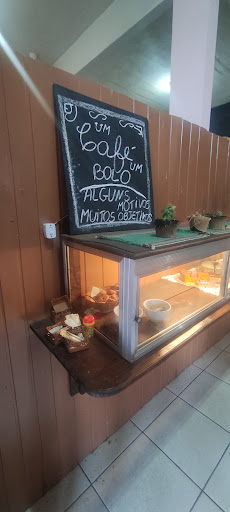 UM
Café
UM
BOLO
ALGUNS
MOTIVOS
MUITOS OBJETIVOS